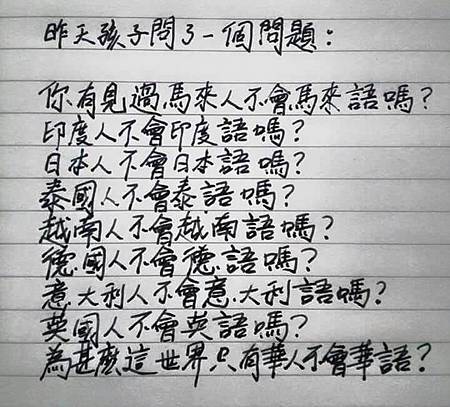 昨天孩子問了一個問題：
你有見過馬來人不會馬來語嗎？
印度人不會印度語嗎？
日本人不會日本語嗎？
泰國人不會泰語嗎？
越南人不會越南語嗎？
德國人不會德語嗎？
意大利人不會意大利語嗎？
英國人不會英語嗎？
為甚麼這世界只有華人不會華語？